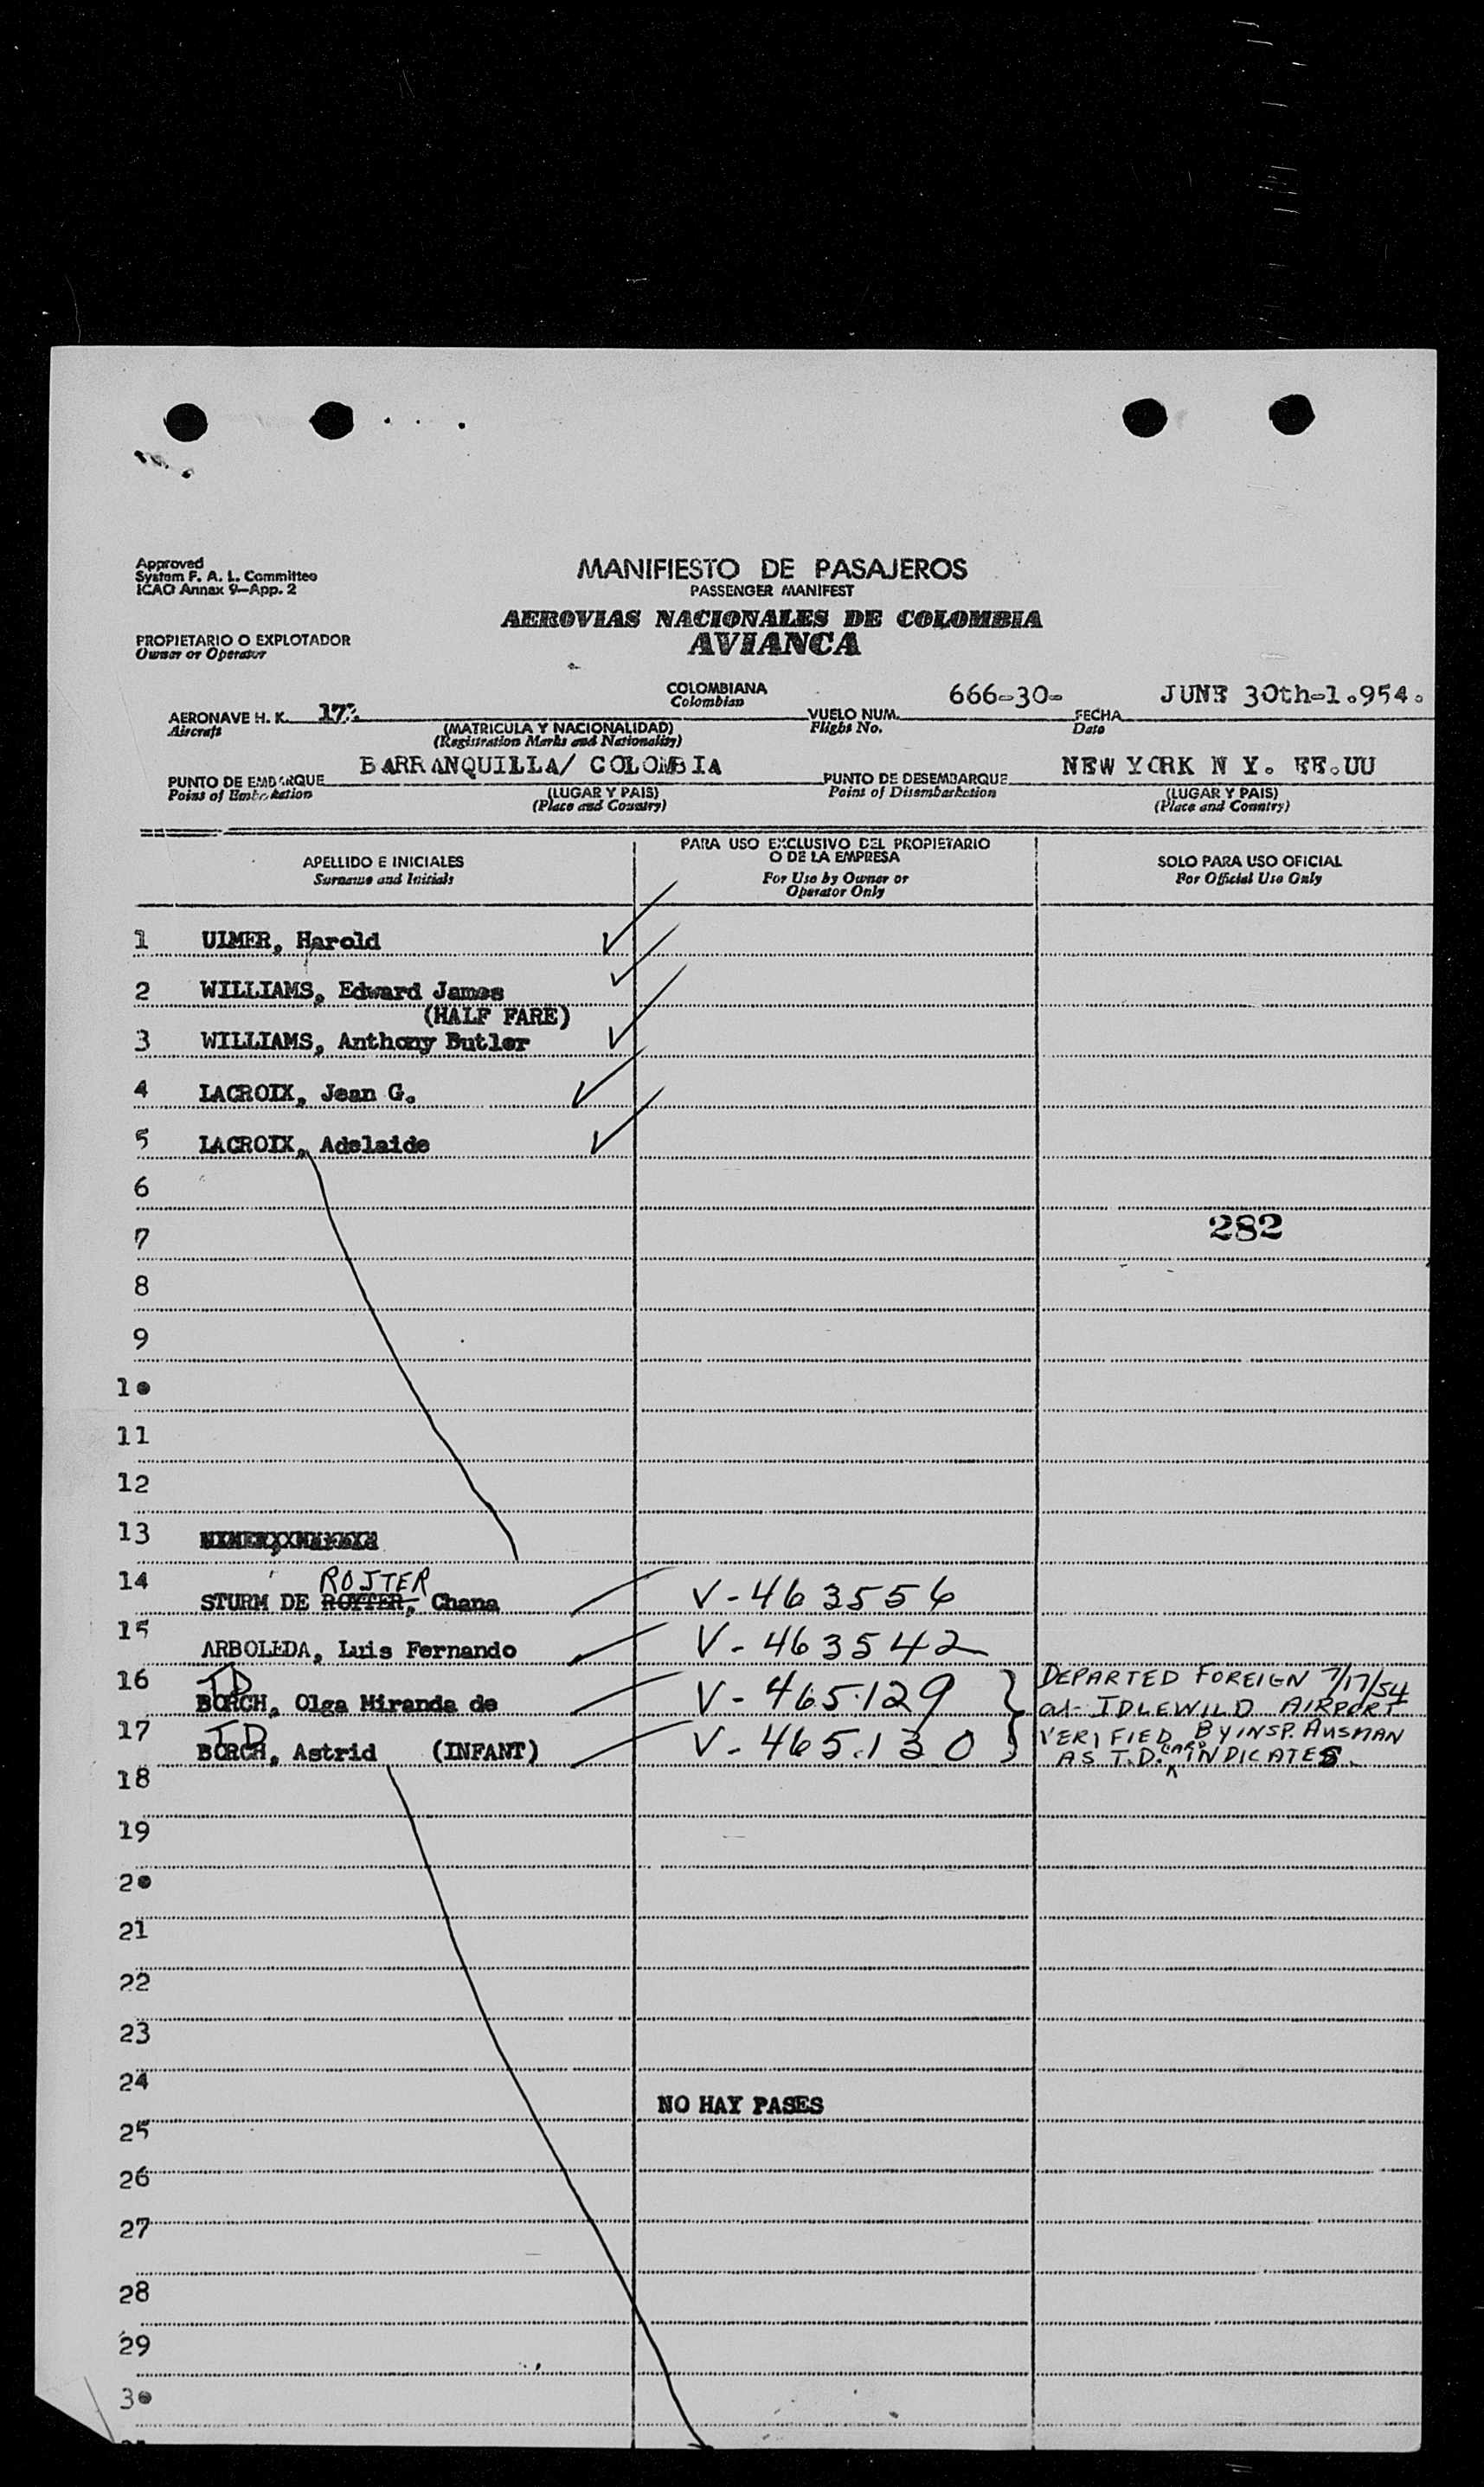 Approved
System F. A. L. Committee
ICAO Annex 9—App. 2
MANIFIESTO DE PASAJEROS
PASSENGER MANIFEST
AEROVIAS NACIONALES DE COLOMBIA
AVIANCA
PROPIETARIO O EXPLOTADOR
Owner or Operator
COLOMBIANA
Colombian
666-30-
JUNE 30th-1.954.
AERONAVE H. K.
Aircraft
(MATRICULA Y NACIONALIDAD)
(Registration Marks and Nationality)
VUELO NUM.
Flight No.
FECHA
Date
BARRANQUILLA/ COLOMBIA
NEW YORK N Y. EE.UU
PUNTO DE EMBARQUE
Point of Embarkation
(LUGAR Y PAIS)
(Place and Country)
PUNTO DE DESEMBARQUE
Point of Disembarkation
(LUGAR Y PAIS)
(Place and Country)
APELLIDO E INICIALES
Surname and Initials
PARA USO EXCLUSIVO DEL PROPIETARIO
O DE LA EMPRESA
For Use by Owner or
Operator Only
SOLO PARA USO OFICIAL
For Official Use Only
1 ULMER, Harold
2 WILLIAMS, Edward James
(HALF FARE)
3 WILLIAMS, Anthony Butler
4 LACROIX, Jean G.
5 LACROIX, Adelaide
6
282
7
8
9
10
11
12
13
14 ROJTER
STURM DE ROYTER, Chana V-463556
15 ARBOLEDA, Luis Fernando V-463542
16 TD
BORCH, Olga Miranda de V-465.129
DEPARTED FOREIGN 7/17/54
at IDLEWILD AIRPORT
17 TD
BORCH, Astrid (INFANT) V-465.130
VERIFIED BY INSP. AUSMAN
AS T.D. CARD INDICATES.
18
19
20
21
22
23
24
NO HAY PASES
25
26
27
28
29
30